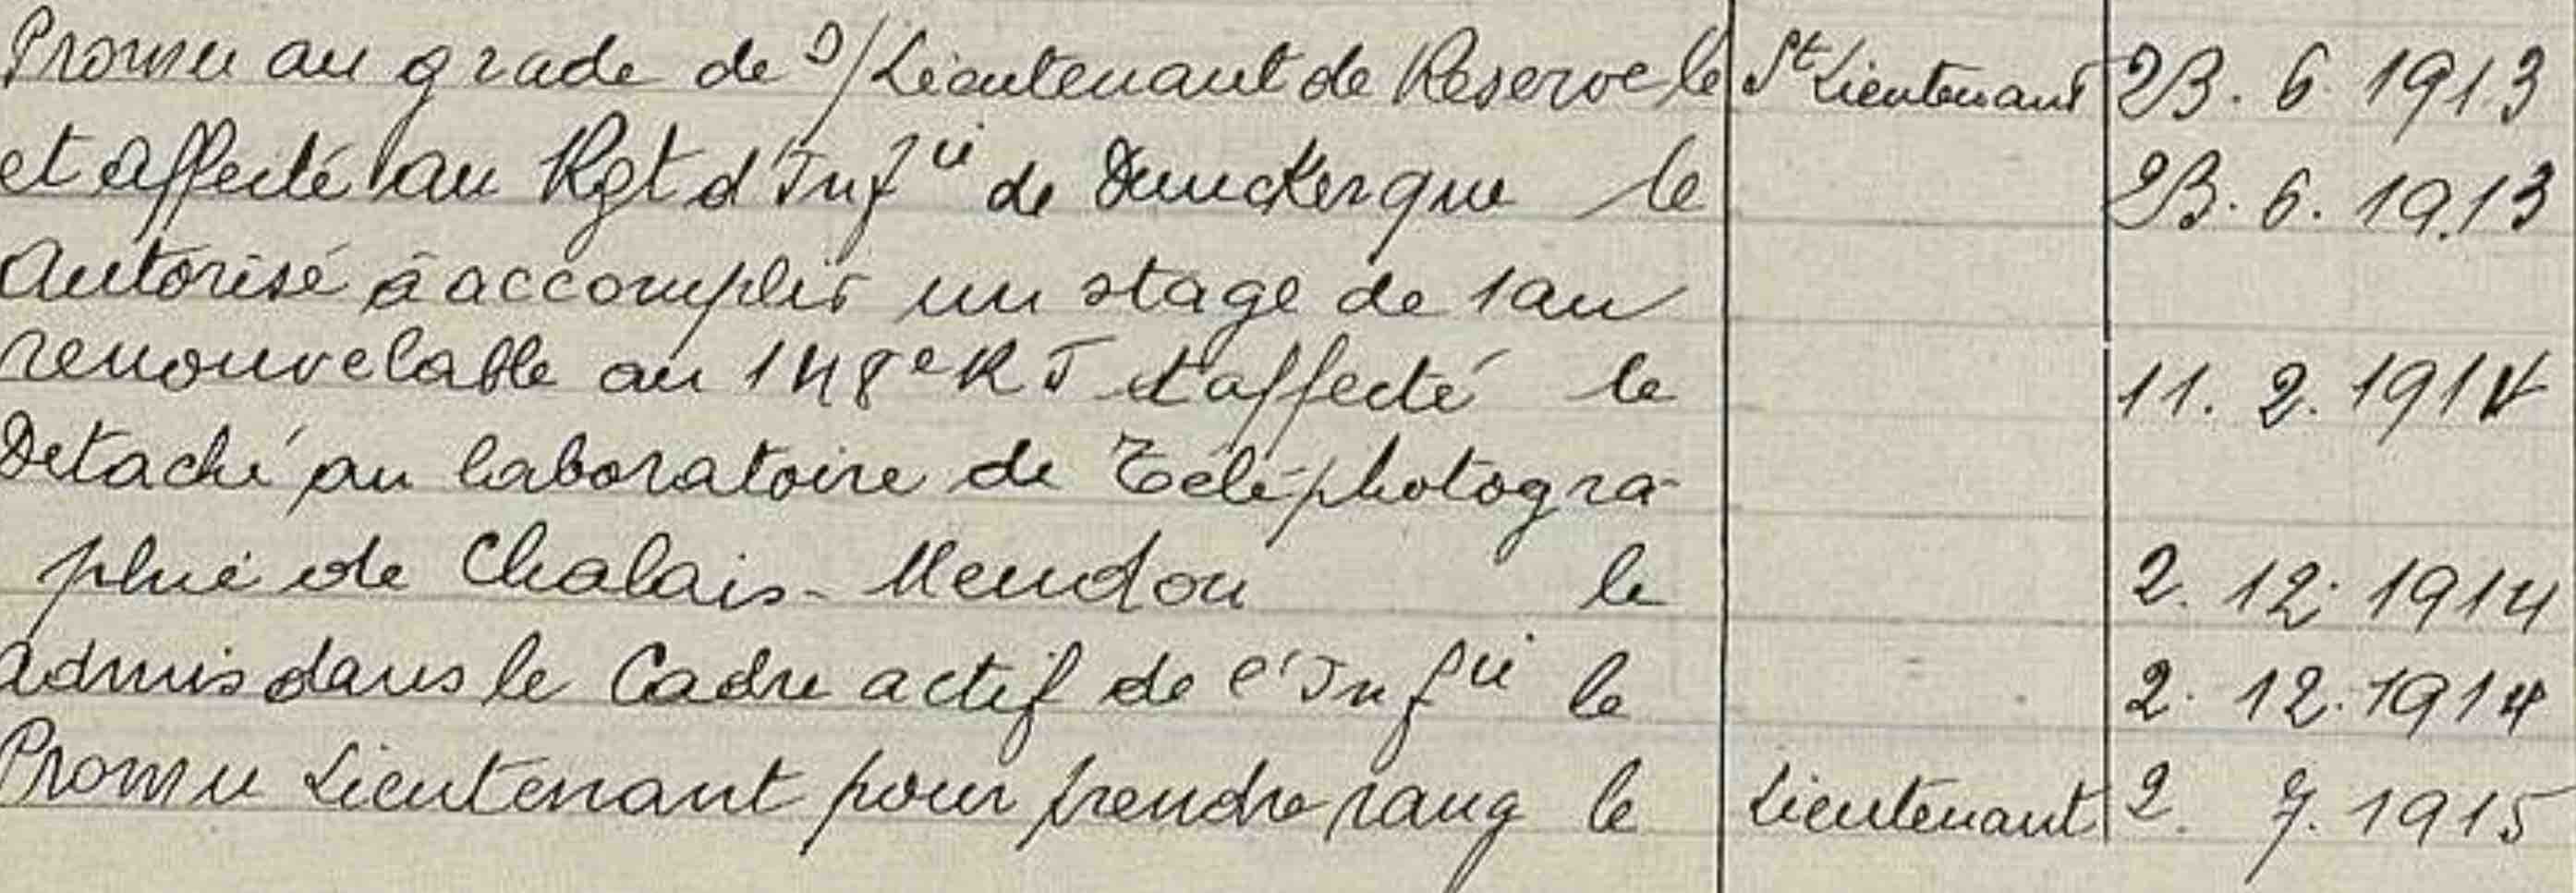 Promu au grade de S/Lieutenant de Reserve le St Lieutenant 23. 6 1913
et affecté au Rgt d'Infie de Dunckerque le 23. 6. 1913
Autorisé à accomplir un stage de 1 an
renouvelable au 148e RI et affecté le 11. 2. 1914
Detaché au laboratoire de Téléphotogra-
phie de Chalais-Meudon le 2. 12. 1914
admis dans le Cadre actif de l'Infie le 2. 12. 1914
Promu Lieutenant pour prendre rang le Lieutenant 2. 7. 1915